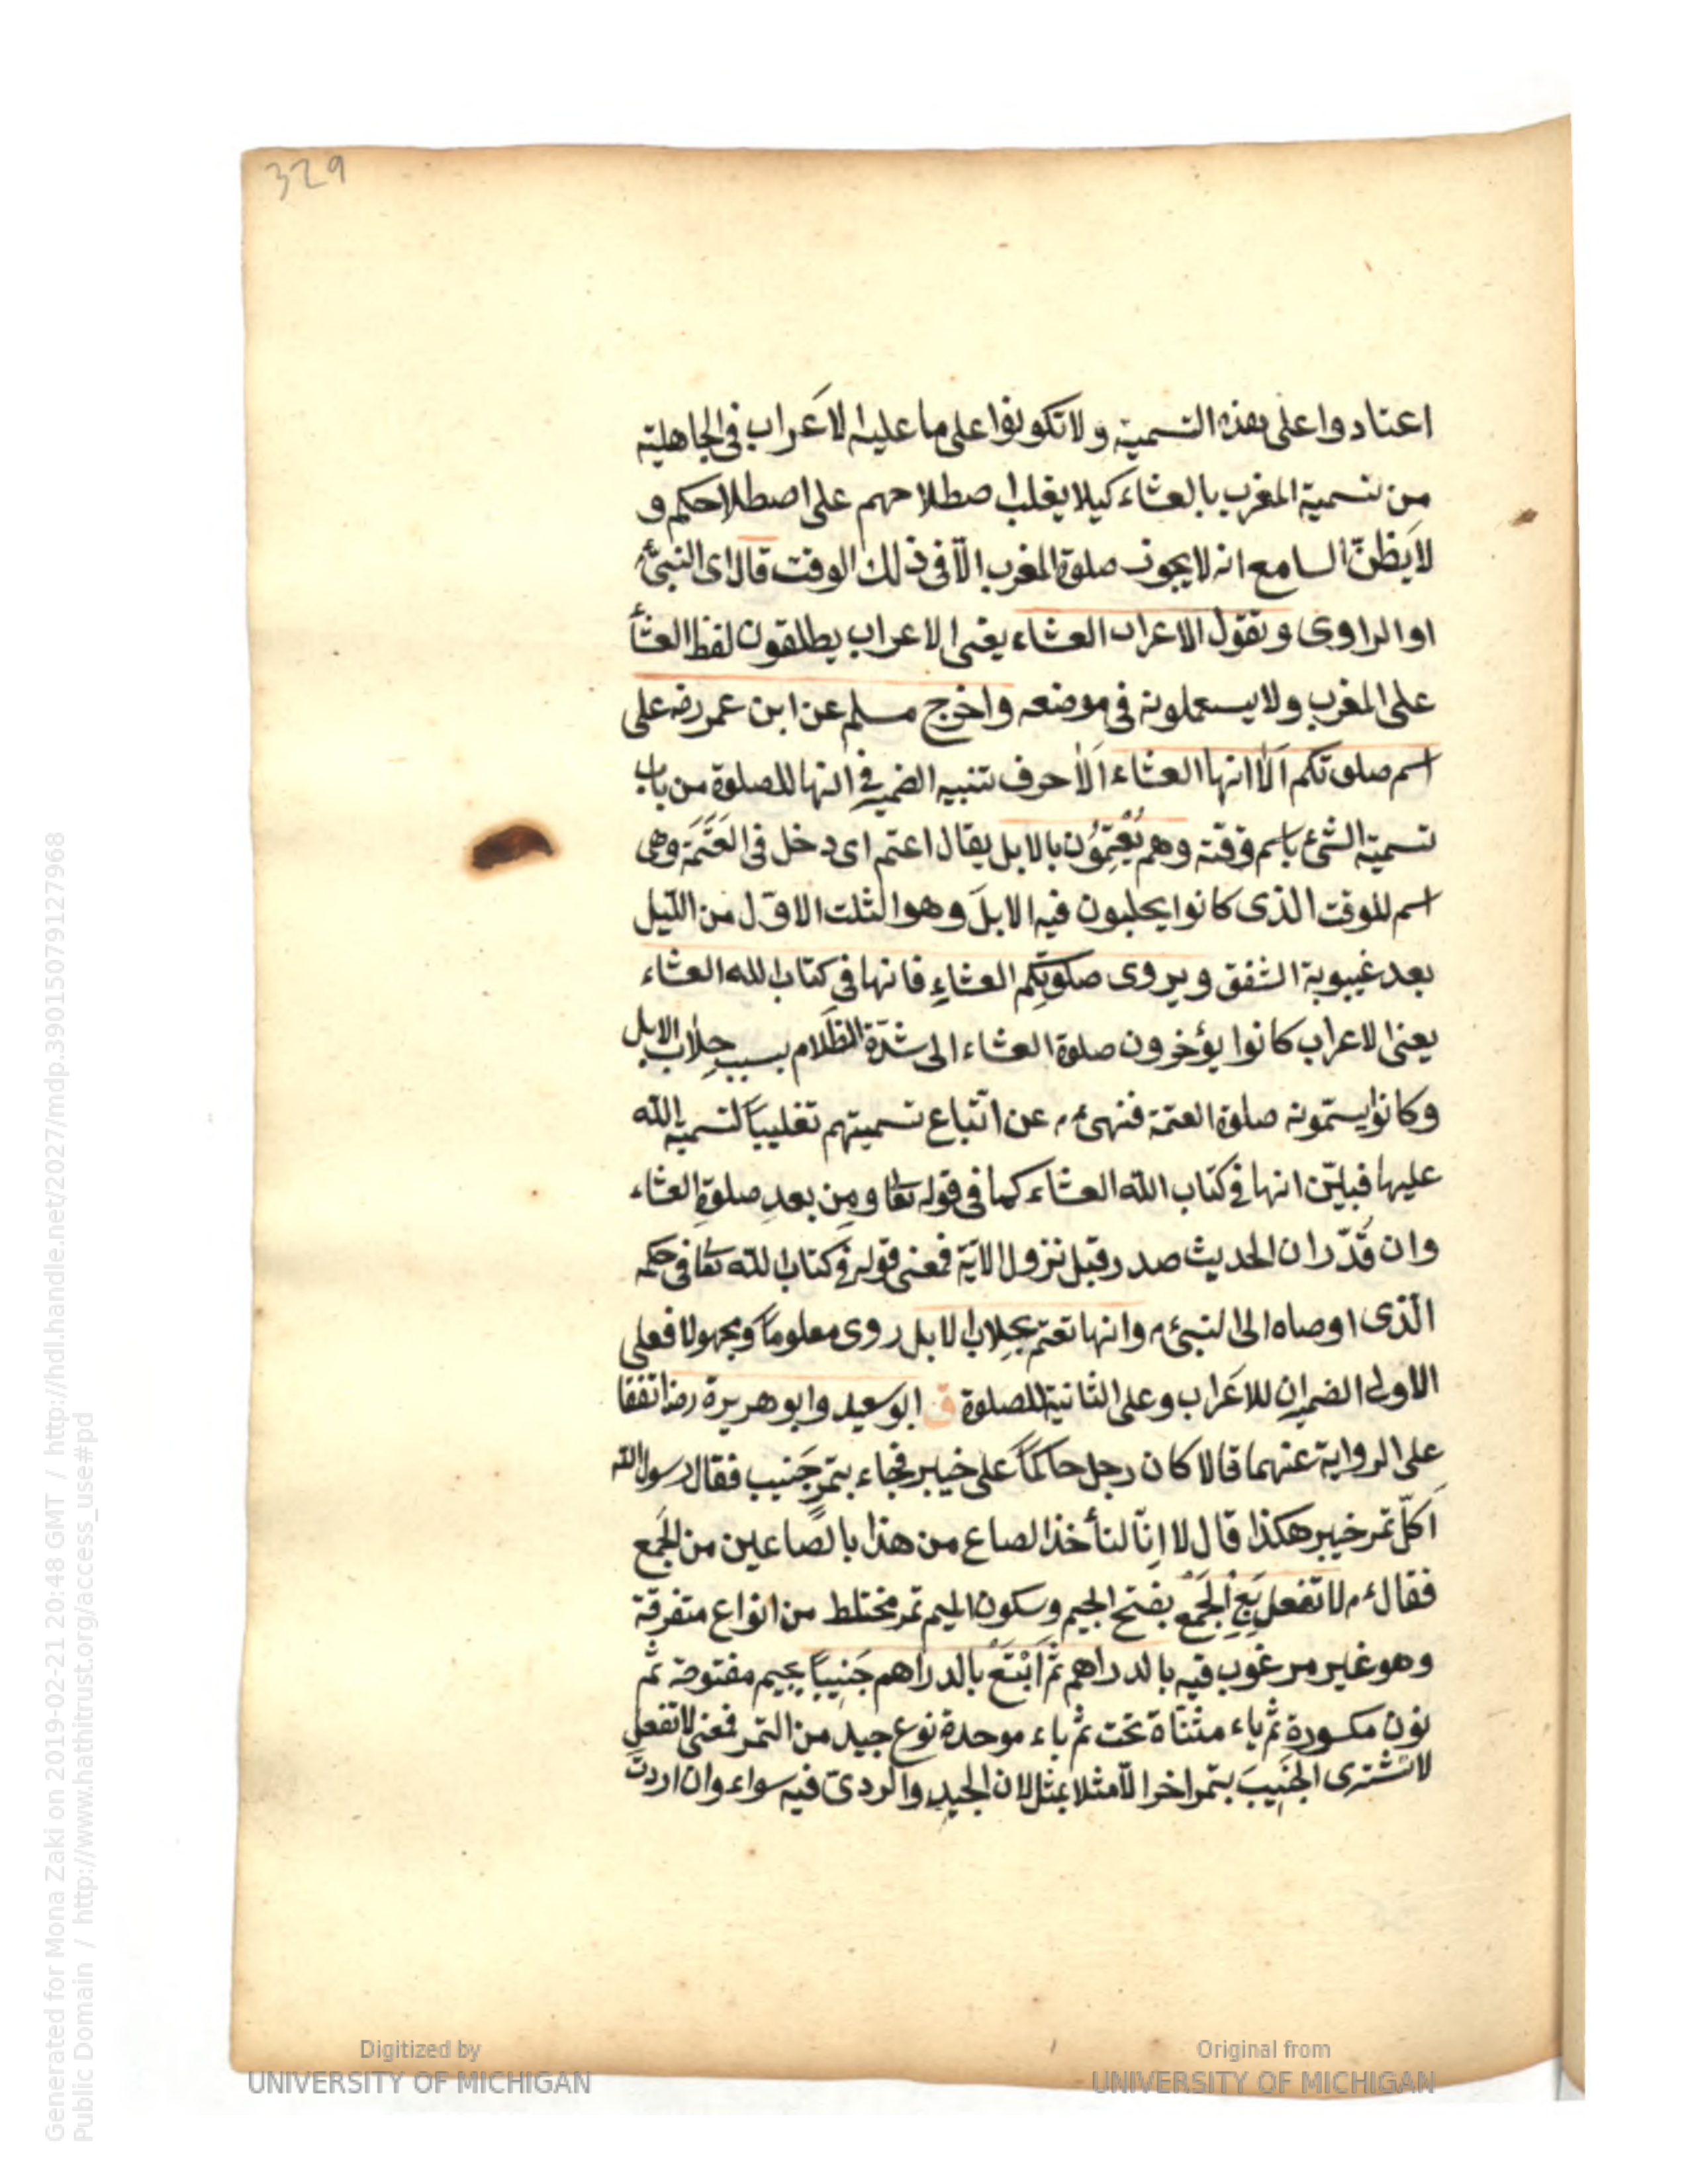 329
اعتادوا على هذه التسمية ولا تكونوا على ما عليه الاَعراب فى الجاهلية
من تسمية المغرب بالعشاء كيلا يغلب اصطلاحهم على اصطلاحكم و
لا يَظنّ السامع انه لا يجوز صلوة المغرب الّا فى ذلك الوقت قال اى النبىء م
او الراوى وتقول الاعراب العشاء يعنى الاعراب يطلقون لفظ العشأ
على المغرب ولا يستعملونه فى موضعه واخرج مسلم عن ابن عمر رضه على
اسم صلوتكم اَلا انها العشاء اَلا حرف تنبيه الضمير فى انها للصلوة من باب
تسمية الشئ باسم وقته وهم يُعْتِمُوُن بالابل يقال اعتم اى دخل فى العَتَمَة وهى
اسم للوقت الذى كانوا يحلبون فيه الابلَ وهو الثلث الاوّل من اللّيل
بعد غيبوبة الشفق ويروى صلوتِكم العشاءِ فانها فى كتاب الله العشاء
يعنى الاعراب كانوا يؤخرون صلوة العشاء الى شدّة الظَلام بسبب حِلاب الابل
وكانوا يسمّونه صلوة العتمة فنهىء م عن اتّباع تسميتهم تغليباً لتسمية الله
عليها فبيّن انها فى كتاب الله العشاء كما فى قوله تعا ومِن بعدِ صلوةِ العشاء
وان قُدّر ان الحديث صدر قبل نزول الآية فمعنى قوله فى كتاب الله تعا فى حكمه
الّذى اوصاه الى النبىء م وانها تعتم بحِلاب الابل روى معلوماً ومجهولا فعلى
الاولى الضميران للاَعراب وعلى الثانية للصلوة ق ابو سعيد وابو هريرة رضا اتفقا
على الرواية عنهما قالا كان رجل حاكماً على خيبر فجاء بتمرٍ جَنيب فقال رسول الله
اَكلّ تمر خيبر هكذا قال لا اِنّا لنأخذ الصاع من هذا بالصاعين من الجَمع
فقالء م لا تفعل بَعِ الجَمْعَ بفتح الجيم وسكون الميم تمر مختلط من انواع متفرقة
وهو غير مرغوب فيه بالدراهم ثم اَبْتَعْ بالدراهم جَنيباً بجيم مفتوحة ثم
نون مكسورة ثم ياء مثنّاة تحت ثم باء موحدة نوع جيد من التمر فمعنى لا تفعل
لا تشترى الجَنيبَ بتمر اخر الّا مثلا بمثل لان الجيد والردىّ فيه سواء وان اردت
Digitized by
UNIVERSITY OF MICHIGAN
Original from
UNIVERSITY OF MICHIGAN
Generated for Mona Zaki on 2019-02-21 20:48 GMT / http://hdl.handle.net/2027/mdp.39015079127968
Public Domain / http://www.hathitrust.org/access_use#pd